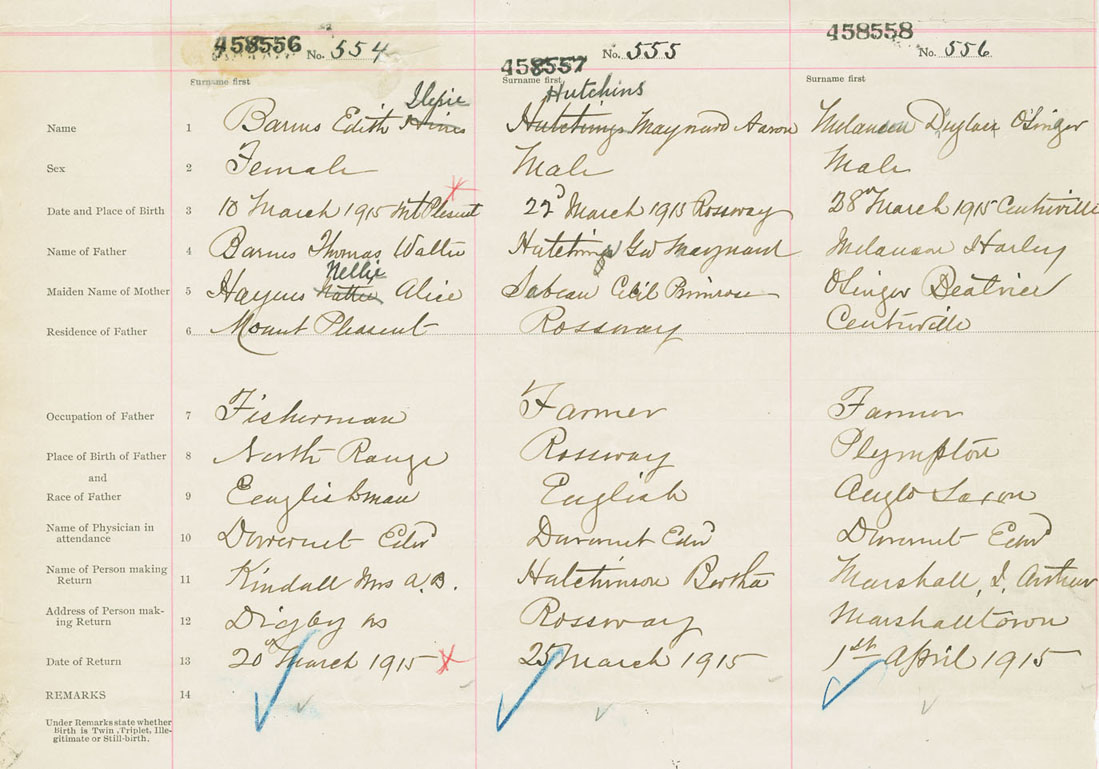 458556 No. 554
458557 No. 555
458558 No. 556
Surname first
Surname first
Surname first
Hutchins
Name 1 Barnes Edith Hutchings Maynard Aaron Melanson Osinger
Sex 2 Female Male Male
Date and Place of Birth 3 10 March 1915 Mt Plesent 22d March 1915 Rossway 28th March 1915 Centriville
Name of Father 4 Barnes Thomas Walter Hutchings Geo Maynard Melanson Harley
Nellie
Maiden Name of Mother 5 Alice Sabean Primrose OSinger Beatrice
Residence of Father 6 Mount Plesent Rossway Centriville
Occupation of Father 7 Fisherman Farmer Farmer
Place of Birth of Father 8 North Range Rossway Plympton
and
Race of Father 9 Englishman English Anglo Saxon
Name of Physician in
attendance 10 Edwd Edwd Edwd
Name of Person making
Return 11 Kindall Mrs A.B. Hutchinson Bertha Marshall, J. Arthur
Address of Person mak-
ing Return 12 Digby NS Rossway Marshalltown
Date of Return 13 20th March 1915 25 March 1915 1st April 1915
REMARKS 14
Under Remarks state whether
Birth is Twin, Triplet, Ille-
gitimate or Still-birth.